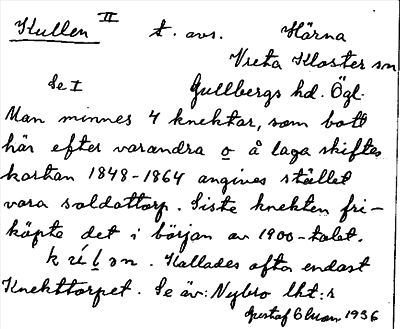 Kullen II t. avs. Härna
Vreta Kloster sn
Se I Gullbergs hd. Ögl.
Man minnes 4 knektar, som bott
här efter varandra o å laga skiftes
kartan 1848-1864 angives stället
vara soldattorp. Siste knekten fri-
köpte det i början av 1900-talet.
Kallades ofta endast
Knekttorpet. Se äv: Nybro lht:r
Gustaf 1936